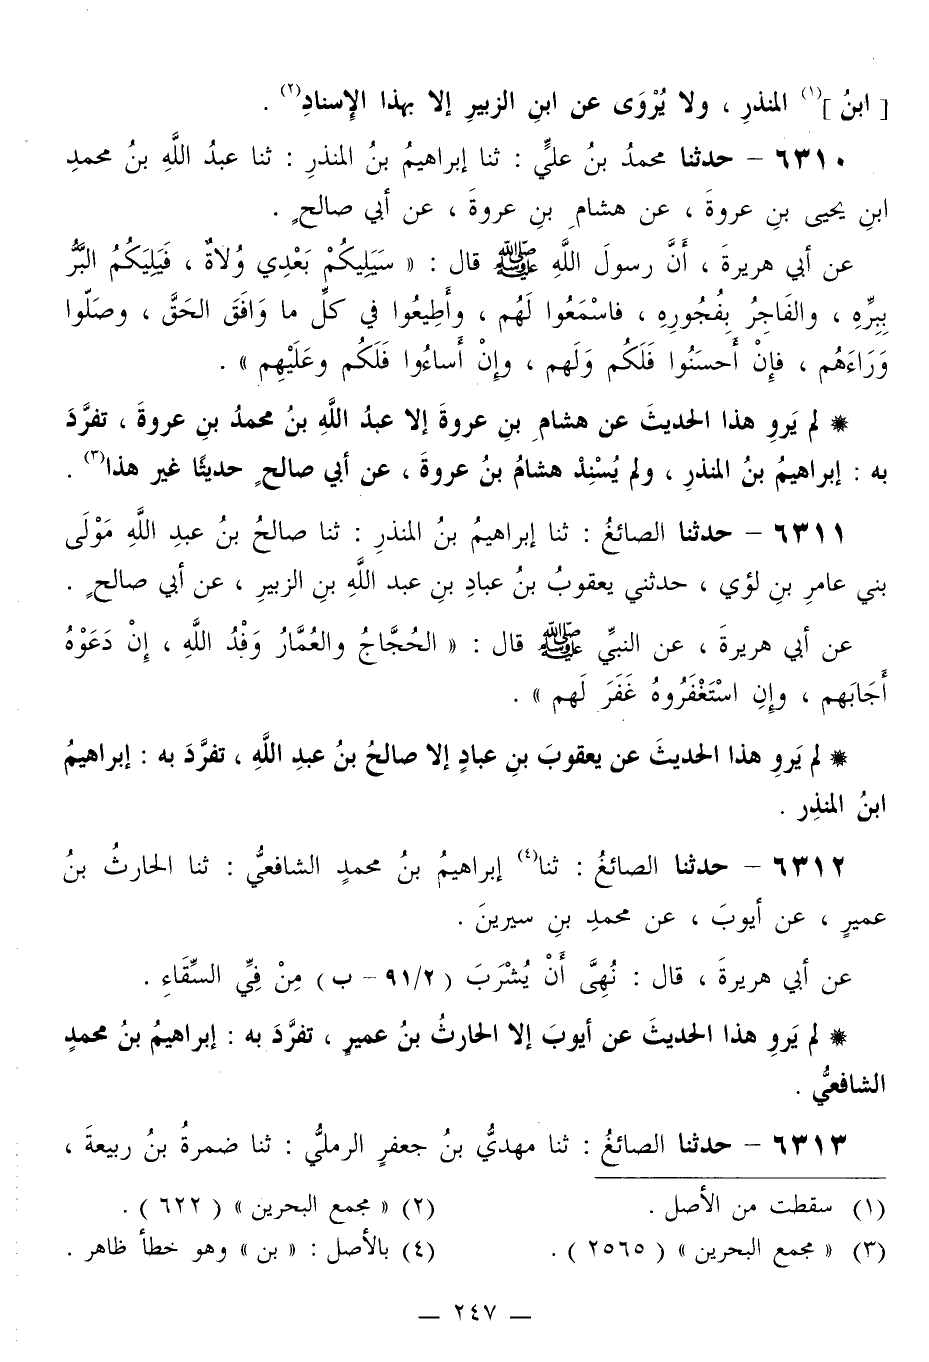 [ ابنُ ]<sup>(١)</sup> المنذرِ ، ولا يُرْوَى عن ابنِ الزبيرِ إلا بهذا الإسنادِ<sup>(٢)</sup> .
٦٣١٠ – حدثنا محمدُ بنُ عليٍّ : ثنا إبراهيمُ بنُ المنذرِ : ثنا عبدُ اللَّهِ بنُ محمدِ
ابنِ يحيى بنِ عروةَ ، عن هشامِ بنِ عروةَ ، عن أبي صالحٍ .
عن أبي هريرةَ ، أَنَّ رسولَ اللَّهِ ﷺ قال : « سَيَلِيكُمْ بَعْدِي وُلاةٌ ، فَيَلِيَكُمُ البَرُّ
بِبِرِّهِ ، والفَاجِرُ بِفُجُورِهِ ، فاسْمَعُوا لَهُم ، وأَطِيعُوا في كلِّ ما وَافَقَ الحَقَّ ، وصَلّوا
وَرَاءَهُم ، فإِنْ أَحسَنُوا فَلَكُم وَلَهم ، وإِنْ أَساءُوا فَلَكُم وعَلَيْهِم » .
* لم يَروِ هذا الحديثَ عن هشامِ بنِ عروةَ إلا عبدُ اللَّهِ بنُ محمدُ بنِ عروةَ ، تفرَّدَ
به : إبراهيمُ بنُ المنذرِ ، ولم يُسْنِدْ هشامُ بنُ عروةَ ، عن أبي صالحٍ حديثًا غير هذا<sup>(٣)</sup> .
٦٣١١ – حدثنا الصائغُ : ثنا إبراهيمُ بنُ المنذرِ : ثنا صالحُ بنُ عبدِ اللَّهِ مَوْلَى
بني عامرِ بنِ لؤي ، حدثني يعقوبُ بنُ عبادِ بنِ عبد اللَّهِ بنِ الزبيرِ ، عن أبي صالحٍ .
عن أبي هريرةَ ، عن النبيِّ ﷺ قال : « الحُجَّاجُ والعُمَّارُ وَفْدُ اللَّهِ ، إِنْ دَعَوْهُ
أَجَابَهم ، وإِنِ اسْتَغْفَرُوهُ غَفَرَ لَهم » .
* لم يَروِ هذا الحديثَ عن يعقوبَ بنِ عبادٍ إلا صالحُ بنُ عبدِ اللَّهِ ، تفرَّدَ به : إبراهيمُ
ابنُ المنذِر .
٦٣١٢ – حدثنا الصائغُ : ثنا<sup>(٤)</sup> إبراهيمُ بنُ محمدٍ الشافعيُّ : ثنا الحارثُ بنُ
عميرٍ ، عن أيوبَ ، عن محمدِ بنِ سيرينَ .
عن أبي هريرةَ ، قال : نُهِيَ أَنْ يُشْرَبَ ( ٩١/٢ – ب ) مِنْ فِيِّ السِّقَاءِ .
* لم يَروِ هذا الحديثَ عن أيوبَ إلا الحارثُ بنُ عميرٍ ، تفرَّدَ به : إبراهيمُ بنُ محمدٍ
الشافعيُّ .
٦٣١٣ – حدثنا الصائغُ : ثنا مهديُّ بنُ جعفرٍ الرمليُّ : ثنا ضمرةُ بنُ ربيعةَ ،
(١) سقطت من الأصل .
(٢) « مجمع البحرين » ( ٦٢٢ ) .
(٣) « مجمع البحرين » ( ٢٥٦٥ ) .
(٤) بالأصل : « بن » وهو خطأ ظاهر .
— ٢٤٧ —